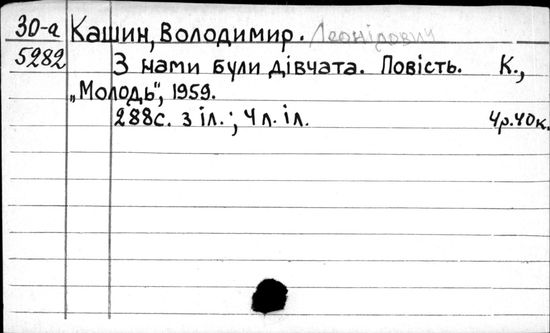 30-а Кашин, Володимир. Леонідович
5282 З нами були дівчата. Повість. К.,
„Молодь", 1959.
288с. з іл.; 4 л. іл. 4р.40к.